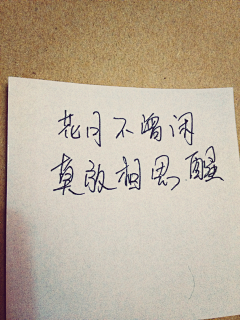 花月不曾闲
莫放相思醒